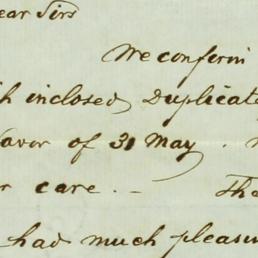 ear Sirs
We confirm
h inclosed Duplicate
favor of 31 May
r care. — Tha
had much pleasu